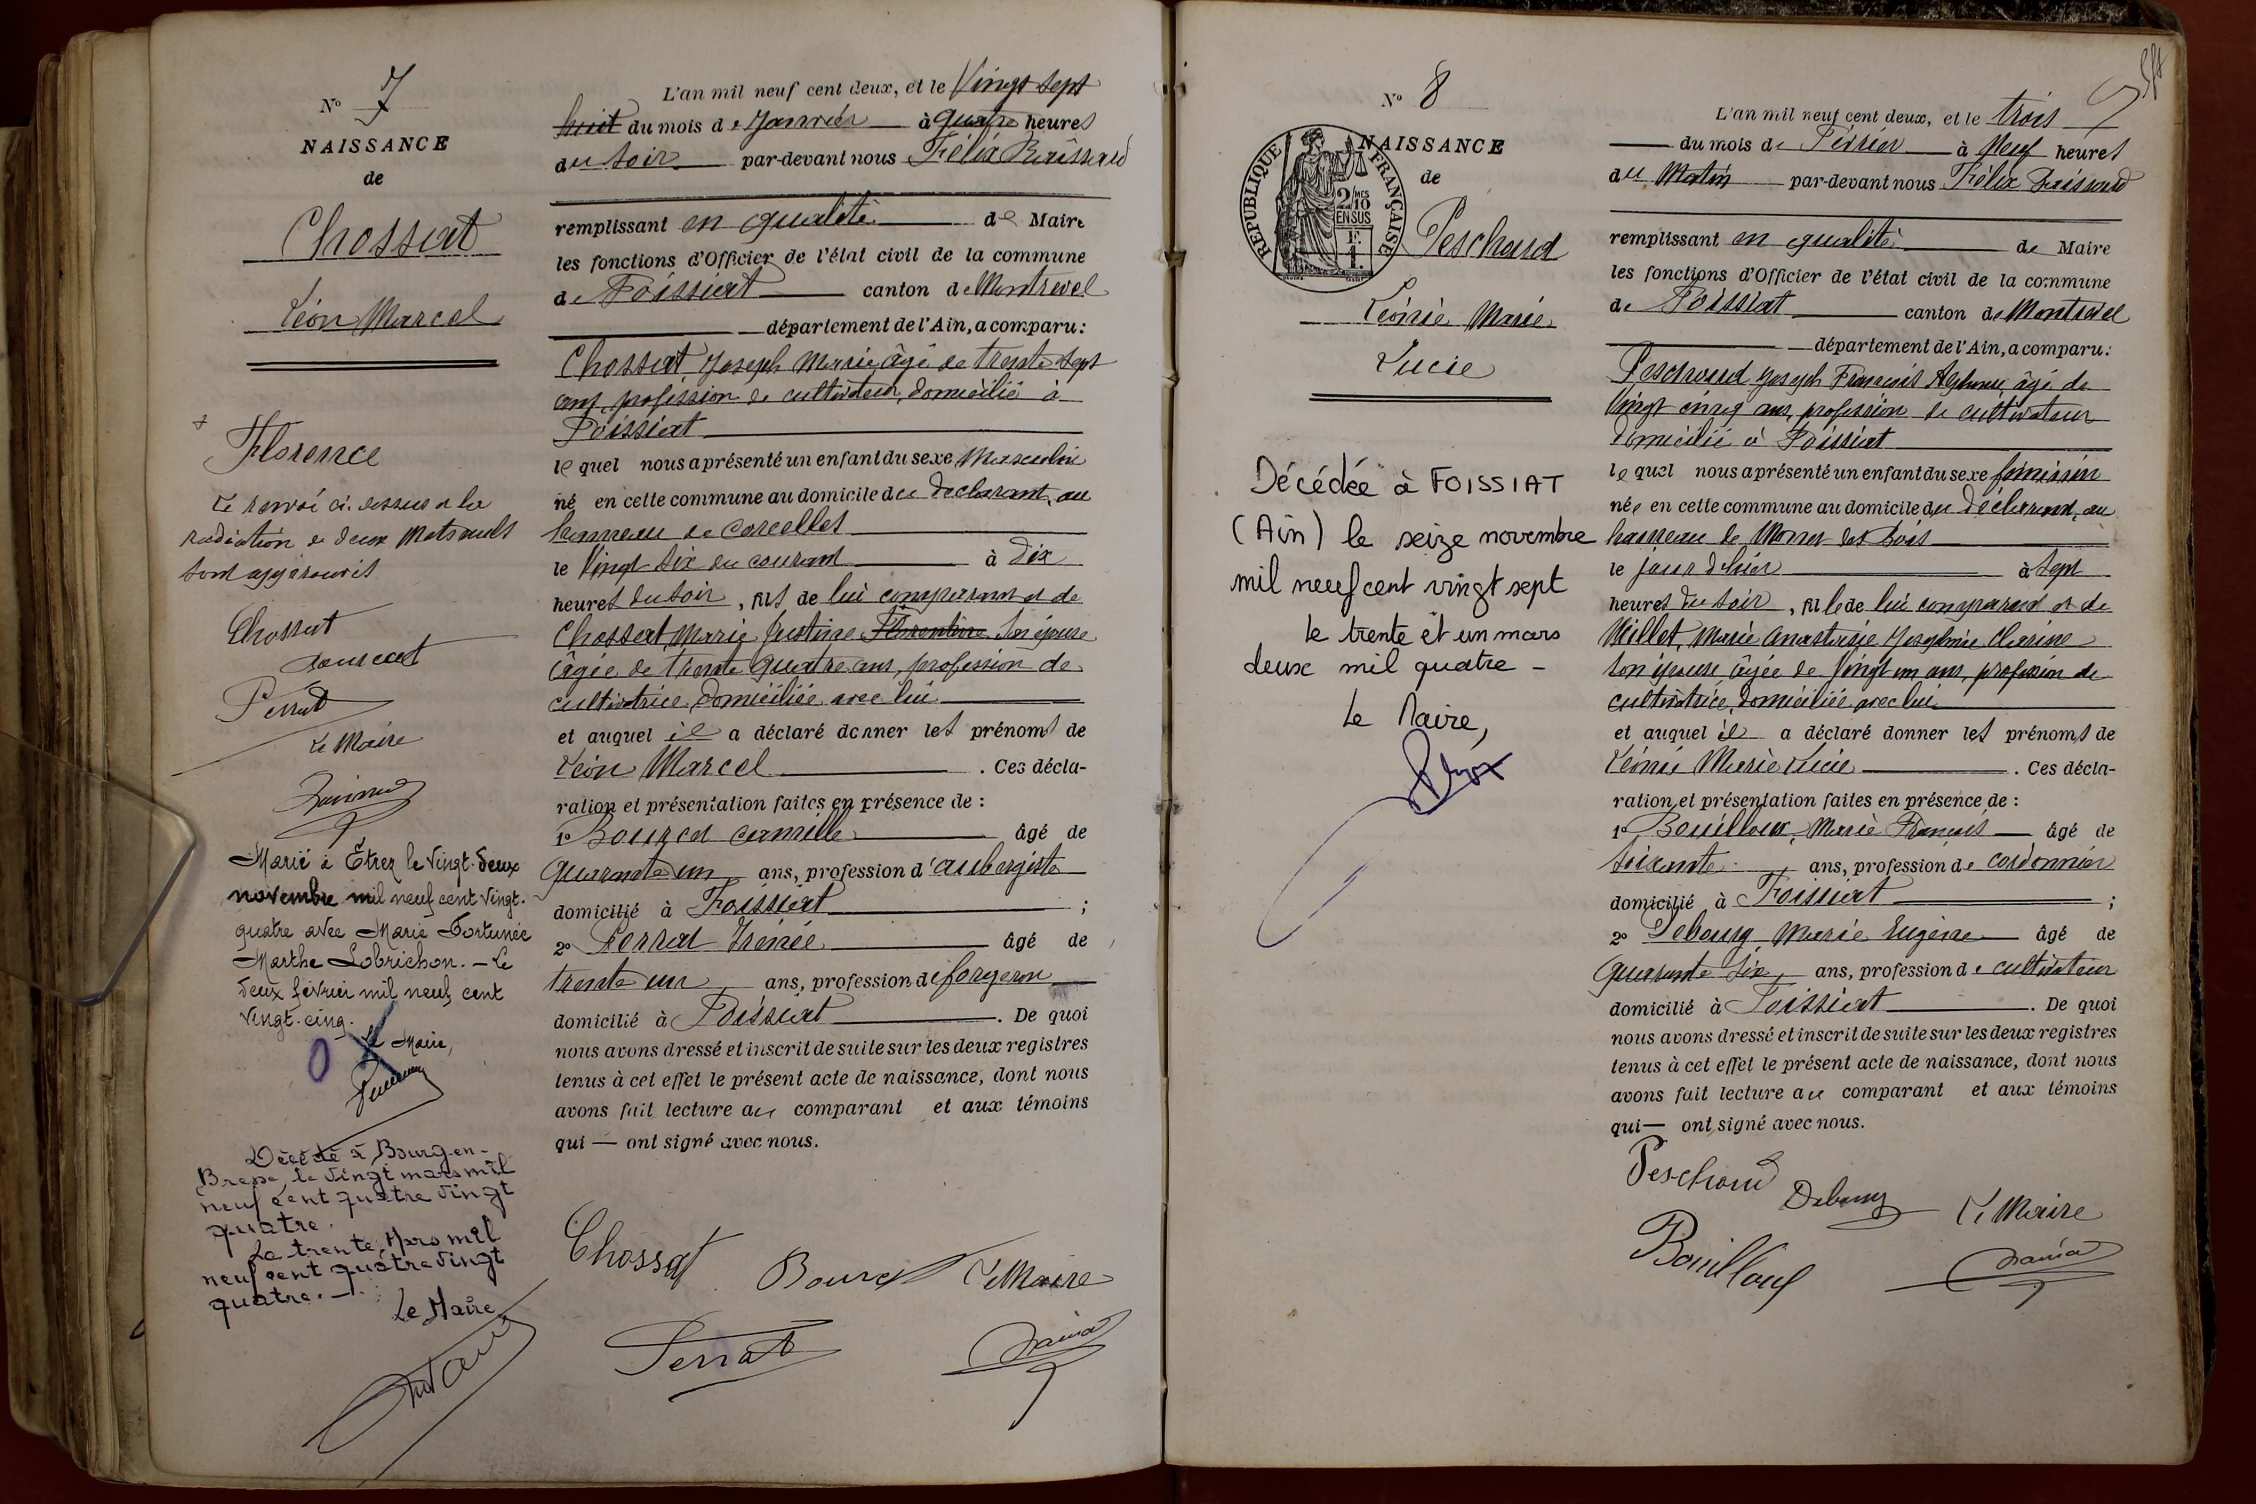 N° 7
NAISSANCE
de
Chossat
Léon Marcel
+
Florence
Le renvoi ci-dessus et la
radiation de deux Mots nuls
sont approuvés
Chossat
Bourcet
Perrat
Le Maire
Marié à Etrez le vingt-deux
novembre mil neuf cent vingt-
quatre avec Marie Fortunée
Marthe Lobrichon. – Le
deux février mil neuf cent
vingt-cinq.
Le Maire,
Décédé à Bourg-en-
Bresse, le vingt mars mil
neuf cent quatre vingt
quatre.
Le trente Mars mil
neuf cent quatre vingt
quatre. –
Le Maire,
L'an mil neuf cent deux, et le Vingt sept
huit du mois de Janvier à quatre heures
du soir par-devant nous Félix
remplissant en qualité de Maire
les fonctions d'Officier de l'état civil de la commune
de Foissiat canton de Montrevel
département de l'Ain, a comparu:
Chossat Joseph Marie âgé de trente-sept
ans, profession de cultivateur, domicilié à
Foissiat
lequel nous a présenté un enfant du sexe Masculin
né en cette commune au domicile du déclarant, au
hameau de Corcelles
le Vingt six du courant à dix
heures du soir, fils de lui comparant et de
Chossat, Marie Justine Florentine son épouse
âgée de trente quatre ans, profession de
cultivatrice, domiciliée avec lui
et auquel il a déclaré donner les prénoms de
Léon Marcel . Ces décla-
ration et présentation faites en présence de :
1° Bourcet Camille âgé de
quarante un ans, profession d'aubergiste
domicilié à Foissiat ;
2° Perrat Irénée âgé de
trente un ans, profession de forgeron
domicilié à Foissiat . De quoi
nous avons dressé et inscrit de suite sur les deux registres
tenus à cet effet le présent acte de naissance, dont nous
avons fait lecture au comparant et aux témoins
qui — ont signé avec nous.
Chossat Bourcet Le Maire
Perrat
N° 8
NAISSANCE
de
RÉPUBLIQUE FRANÇAISE
2/10
EN SUS
Peschoud
Léonie Marie
Lucie
Décédée à FOISSIAT
(Ain) le seize novembre
mil neuf cent vingt sept
le trente et un mars
deux mil quatre –
Le Maire,
L'an mil neuf cent deux, et le trois
du mois de Février à Neuf heures
du Matin par-devant nous Félix
remplissant en qualité de Maire
les fonctions d'Officier de l'état civil de la commune
de Foissiat canton de Montrevel
département de l'Ain, a comparu:
Peschoud Joseph François âgé de
Vingt cinq ans, profession de cultivateur
domicilié à Foissiat
lequel nous a présenté un enfant du sexe féminin
née en cette commune au domicile du déclarant, au
hameau de
le jour d'hier à sept
heures du soir, fille de lui comparant et de
Millet, Marie Anastasie Joséphine
son épouse âgée de Vingt un ans, profession de
cultivatrice, domiciliée avec lui
et auquel il a déclaré donner les prénoms de
Léonie Marie Lucie . Ces décla-
ration et présentation faites en présence de :
1° Bouilloux, Marie François âgé de
soixante ans, profession de cordonnier
domicilié à Foissiat ;
2° Debourg Marie Eugène âgé de
quarante six ans, profession de cultivateur
domicilié à Foissiat . De quoi
nous avons dressé et inscrit de suite sur les deux registres
tenus à cet effet le présent acte de naissance, dont nous
avons fait lecture au comparant et aux témoins
qui — ont signé avec nous.
Peschoud Debourg Le Maire
Bouilloux